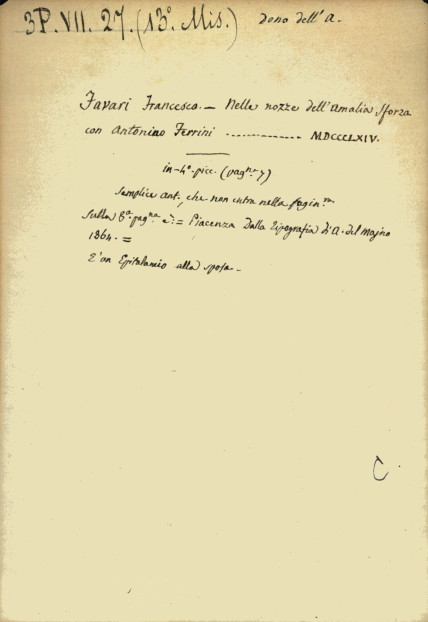 3P. VII. 27. (13º. Mis.) Dono dell'A.
Favari Francesco. — Nelle nozze dell'Amalia Sforza
con Antonino Ferrini ------------ MDCCCLXIV.
in-4º. picc. (pagne 7)
Semplice ant. che non entra nella pagin.ne
Sulla 8ª. pagna è: = Piacenza Dalla Tipografia di A. del Majno
1864. =
E' un Epitalamio alla sposa. —
C.